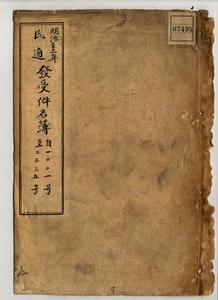 明治三十三年
民適發受件名簿
自一〇〇一号
至二三三五号
07495